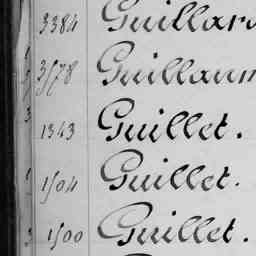 3384 Guillar
3578 Guillaum
1343 Guillet.
1504 Guillet.
1500 Guillet.